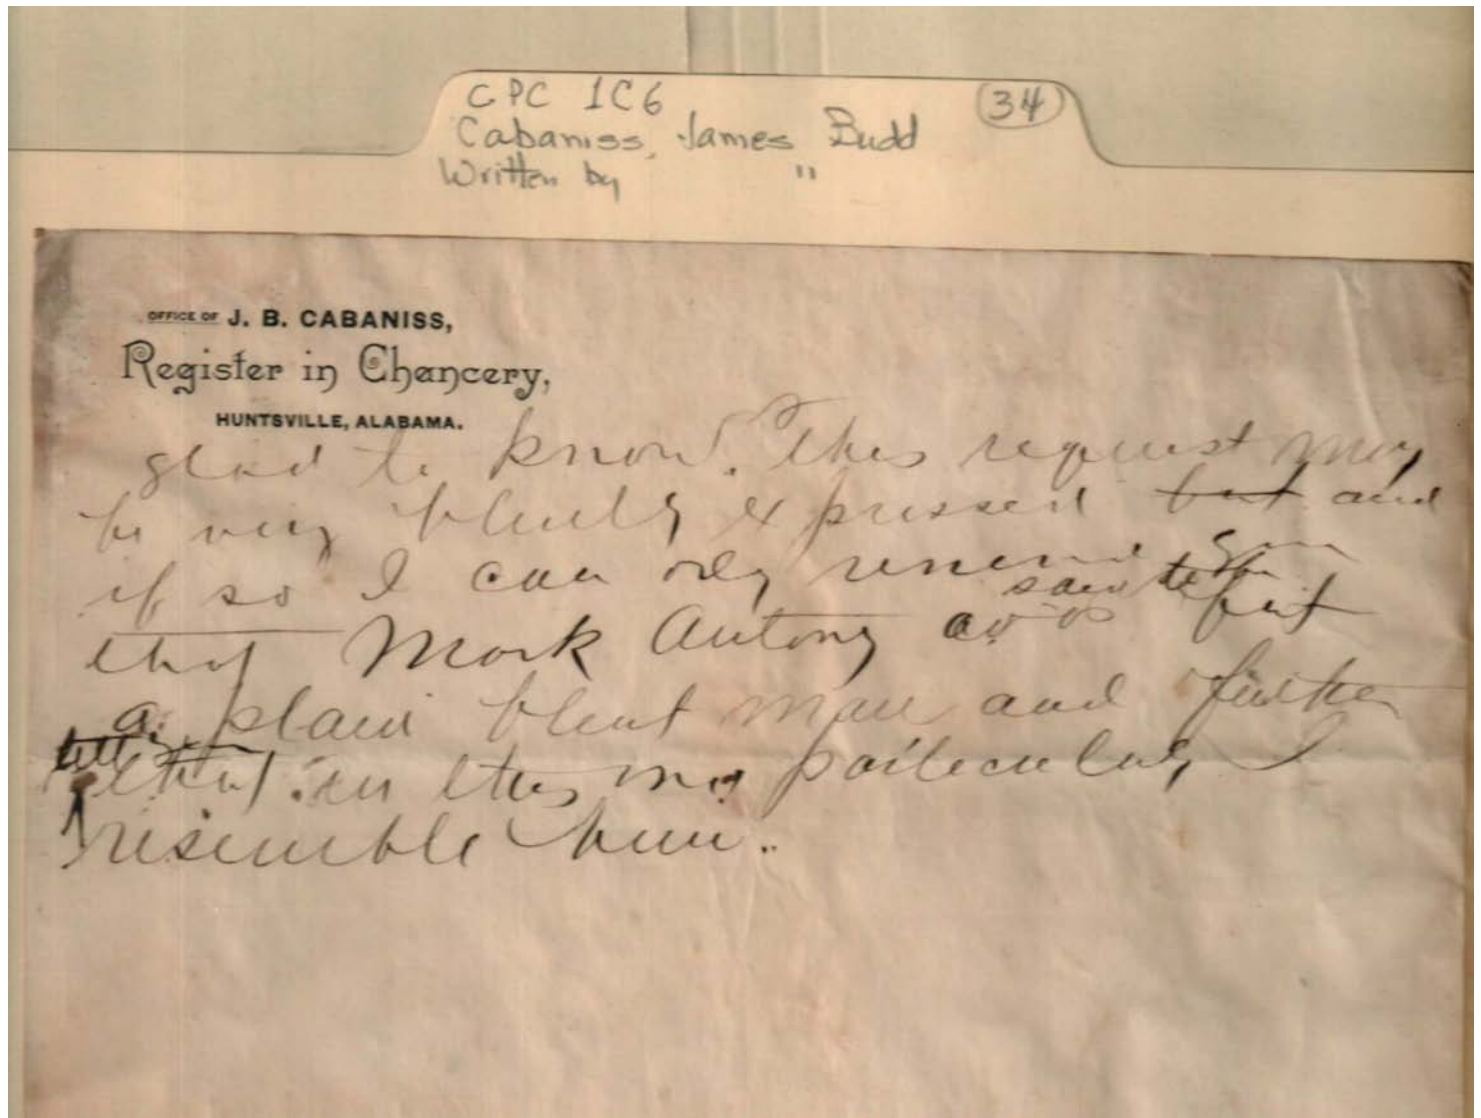 CPC 1C6
34
Cabaniss, James Budd
Written by "
OFFICE OF J. B. CABANISS,
Register in Chancery,
HUNTSVILLE, ALABAMA.
glad to know. This request may
be very bluntly expressed but and
if so I can only remind you
said he
that Mark Antony was but
a plain blunt man and further
that in this particular, I
resemble him.